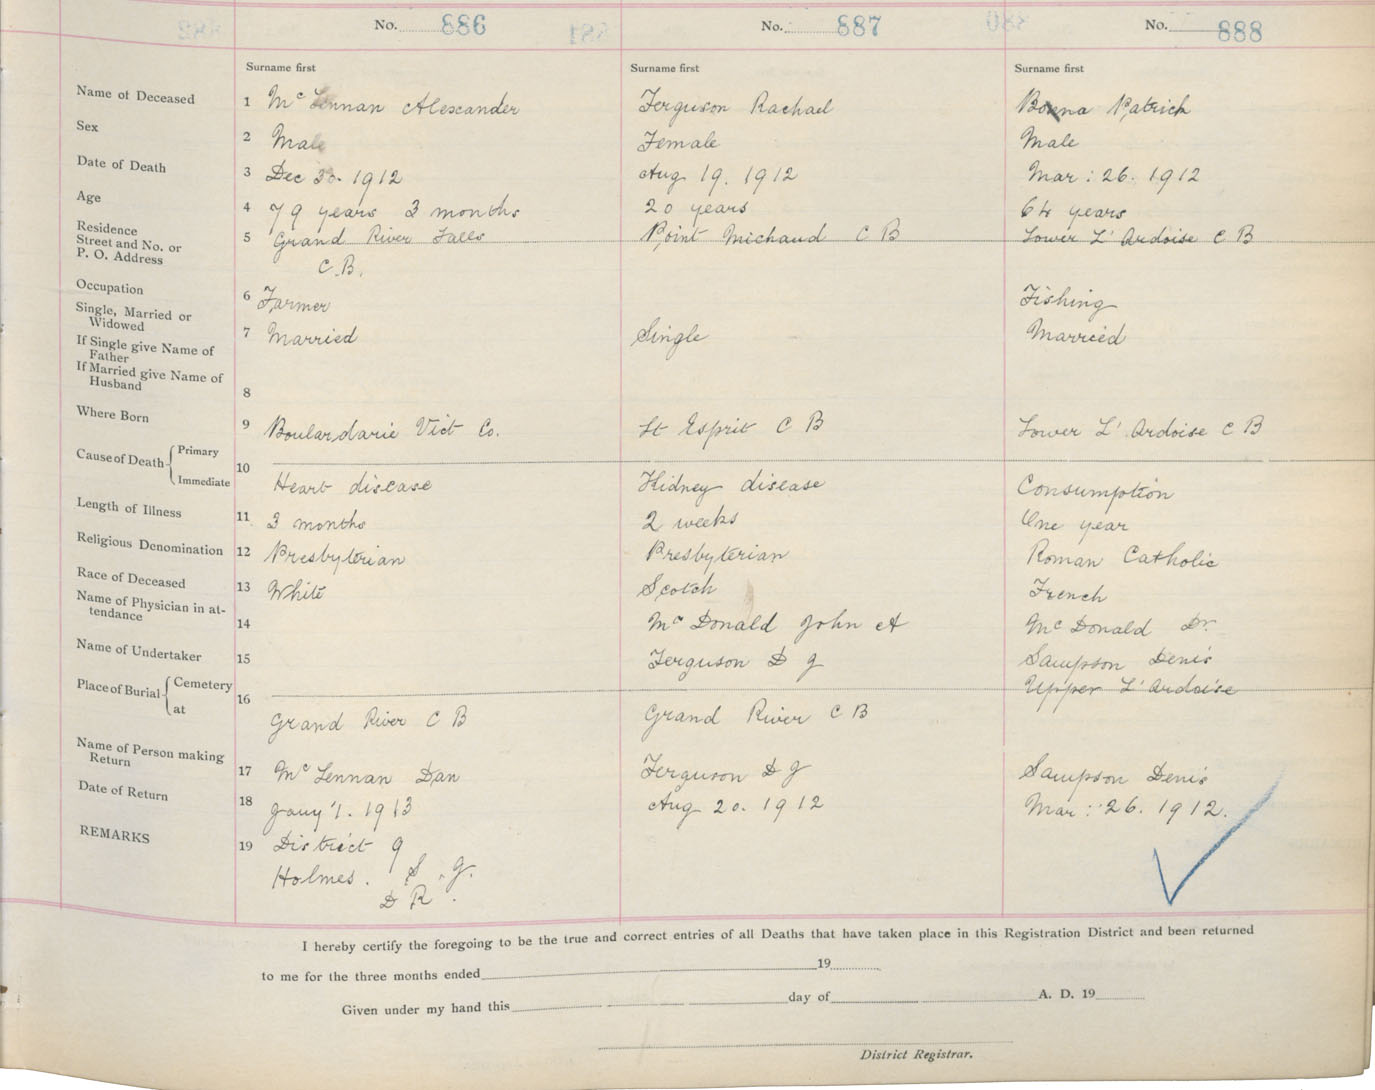 No. 886 No. 887 No. 888
Surname first Surname first Surname first
Name of Deceased 1 Mc Lennan Alexander Ferguson Rachael Patrick
Sex 2 Male Female Male
Date of Death 3 Dec 30. 1912 Aug 19. 1912 Mar: 26. 1912
Age 4 79 years 3 months 20 years 64 years
Residence
Street and No. or 5 Grand River Falls Point Michaud C B Lower L' Ardoise C B
P. O. Address C.B.
Occupation 6 Farmer Fishing
Single, Married or
Widowed 7 Married Single Married
If Single give Name of
Father
If Married give Name of
Husband 8
Where Born 9 Boulardarie Vict Co. St Esprit C B Lower L' Ardoise C B
Cause of Death Primary
Immediate 10 Heart disease Kidney disease Consumption
Length of Illness 11 3 months 2 weeks One year
Religious Denomination 12 Presbyterian Presbyterian Roman Catholic
Race of Deceased 13 White Scotch French
Name of Physician in at-
tendance 14 Mc Donald John A Mc Donald Dr.
Name of Undertaker 15 Ferguson D J Sampson Denis
Place of Burial Cemetery Upper L' Ardoise
at 16 Grand River C B Grand River C B
Name of Person making
Return 17 Mc Lennan Dan Ferguson D J Sampson Denis
Date of Return 18 Jany 1. 1913 Aug 20. 1912 Mar: 26. 1912.
REMARKS 19 District 9
Holmes. S. J.
D R.
I hereby certify the foregoing to be the true and correct entries of all Deaths that have taken place in this Registration District and been returned
to me for the three months ended 19
Given under my hand this day of A. D. 19
District Registrar.